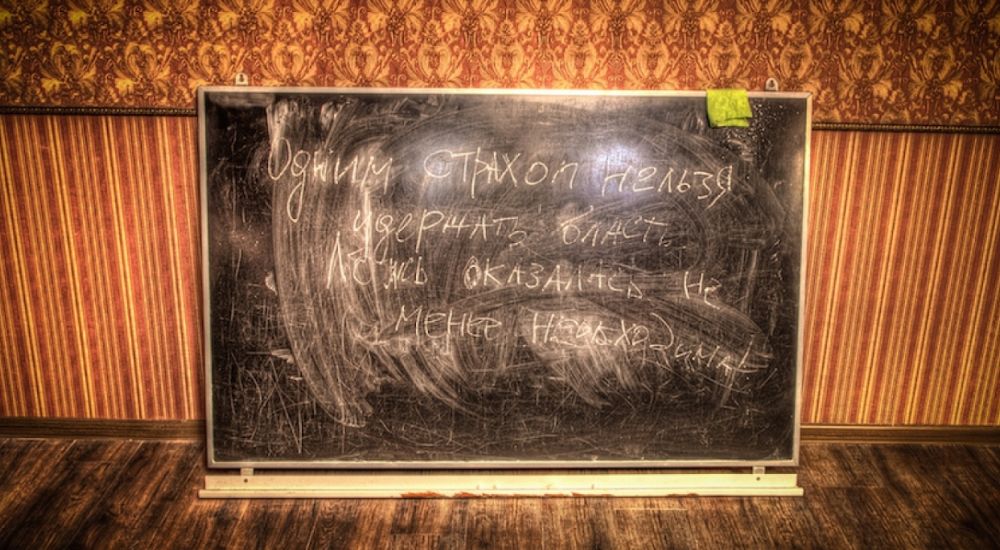 Одним страхом нельзя
удержать власть.
Ложь оказалась не
менее необходима